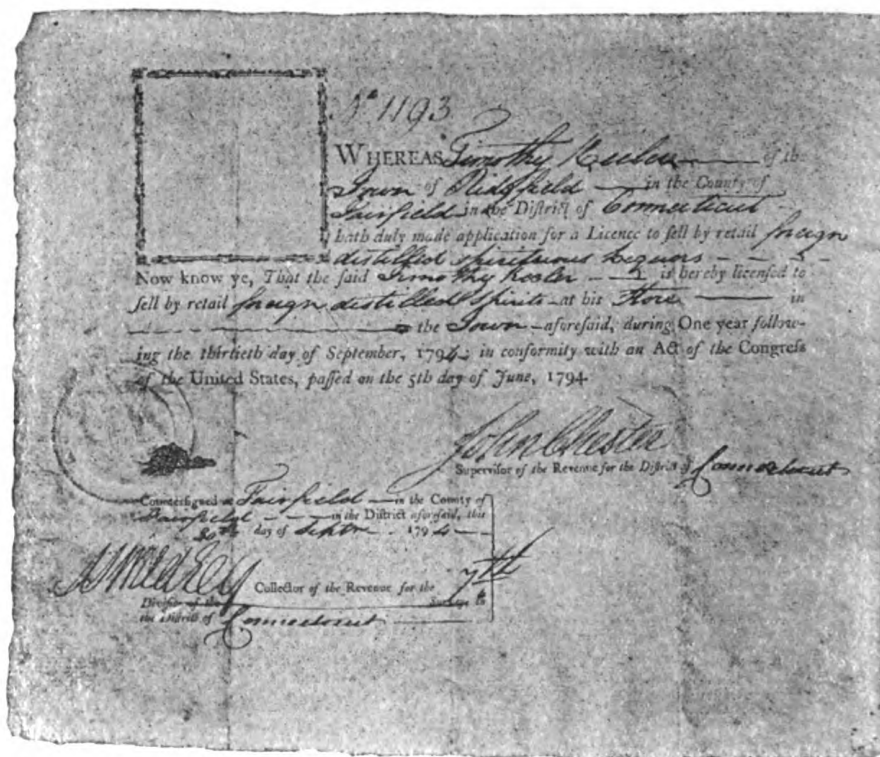 No 1193
WHEREAS Timothy Keeler of the
Town of Ridgfield in the County of
Fairfield in the District of Connecticut
hath duly made application for a Licence to sell by retail foreign
distilled spirituous Liquors
Now know ye, That the said Timothy Keeler is hereby licensed to
sell by retail foreign distilled Spirits at his Store in
the Town aforesaid, during One year follow-
ing the thirtieth day of September, 1794 in conformity with an Act of the Congress
of the United States, passed on the 5th day of June, 1794
John Chester
Supervisor of the Revenue for the District of Connecticut
Countersigned at Fairfield in the County of
Fairfield in the District aforesaid, this
30th day of Septr 1794
Collector of the Revenue for the 7th
Division of the Survey in
the District of Connecticut